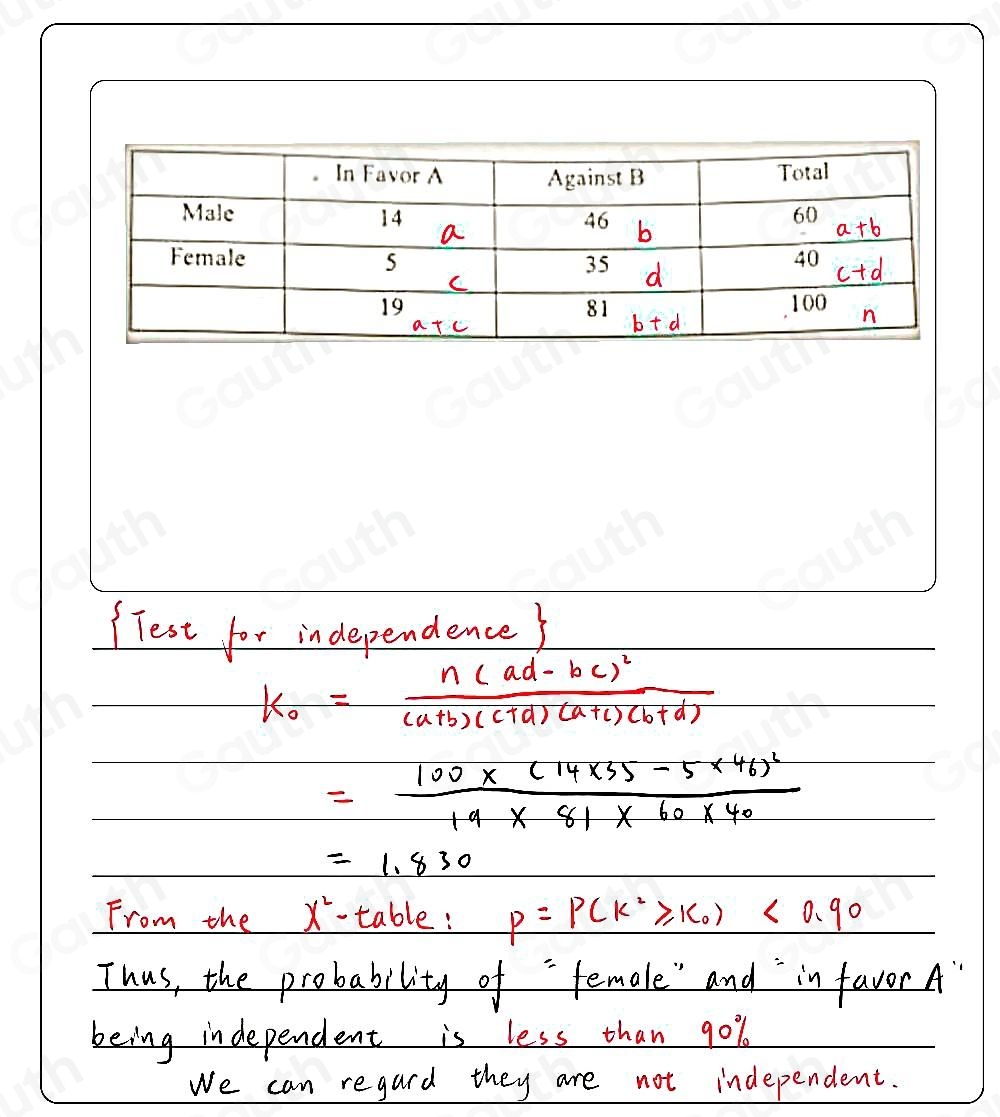 . In Favor A Against B Total
Male 14 a 46 b 60 a+b
Female 5 c 35 d 40 c+d
19 a+c 81 b+d .100 n
{Test for independence}
K₀ = n(ad-bc)² / (a+b)(c+d)(a+c)(b+d)
= 100 × (14×35 - 5×46)² / 19 × 81 × 60 × 40
= 1.830
From the X²-table: p = P(K² ≥ K₀) < 0.90
Thus, the probability of "female" and "in favor A"
being independent is less than 90%
We can regard they are not independent.
Gauth